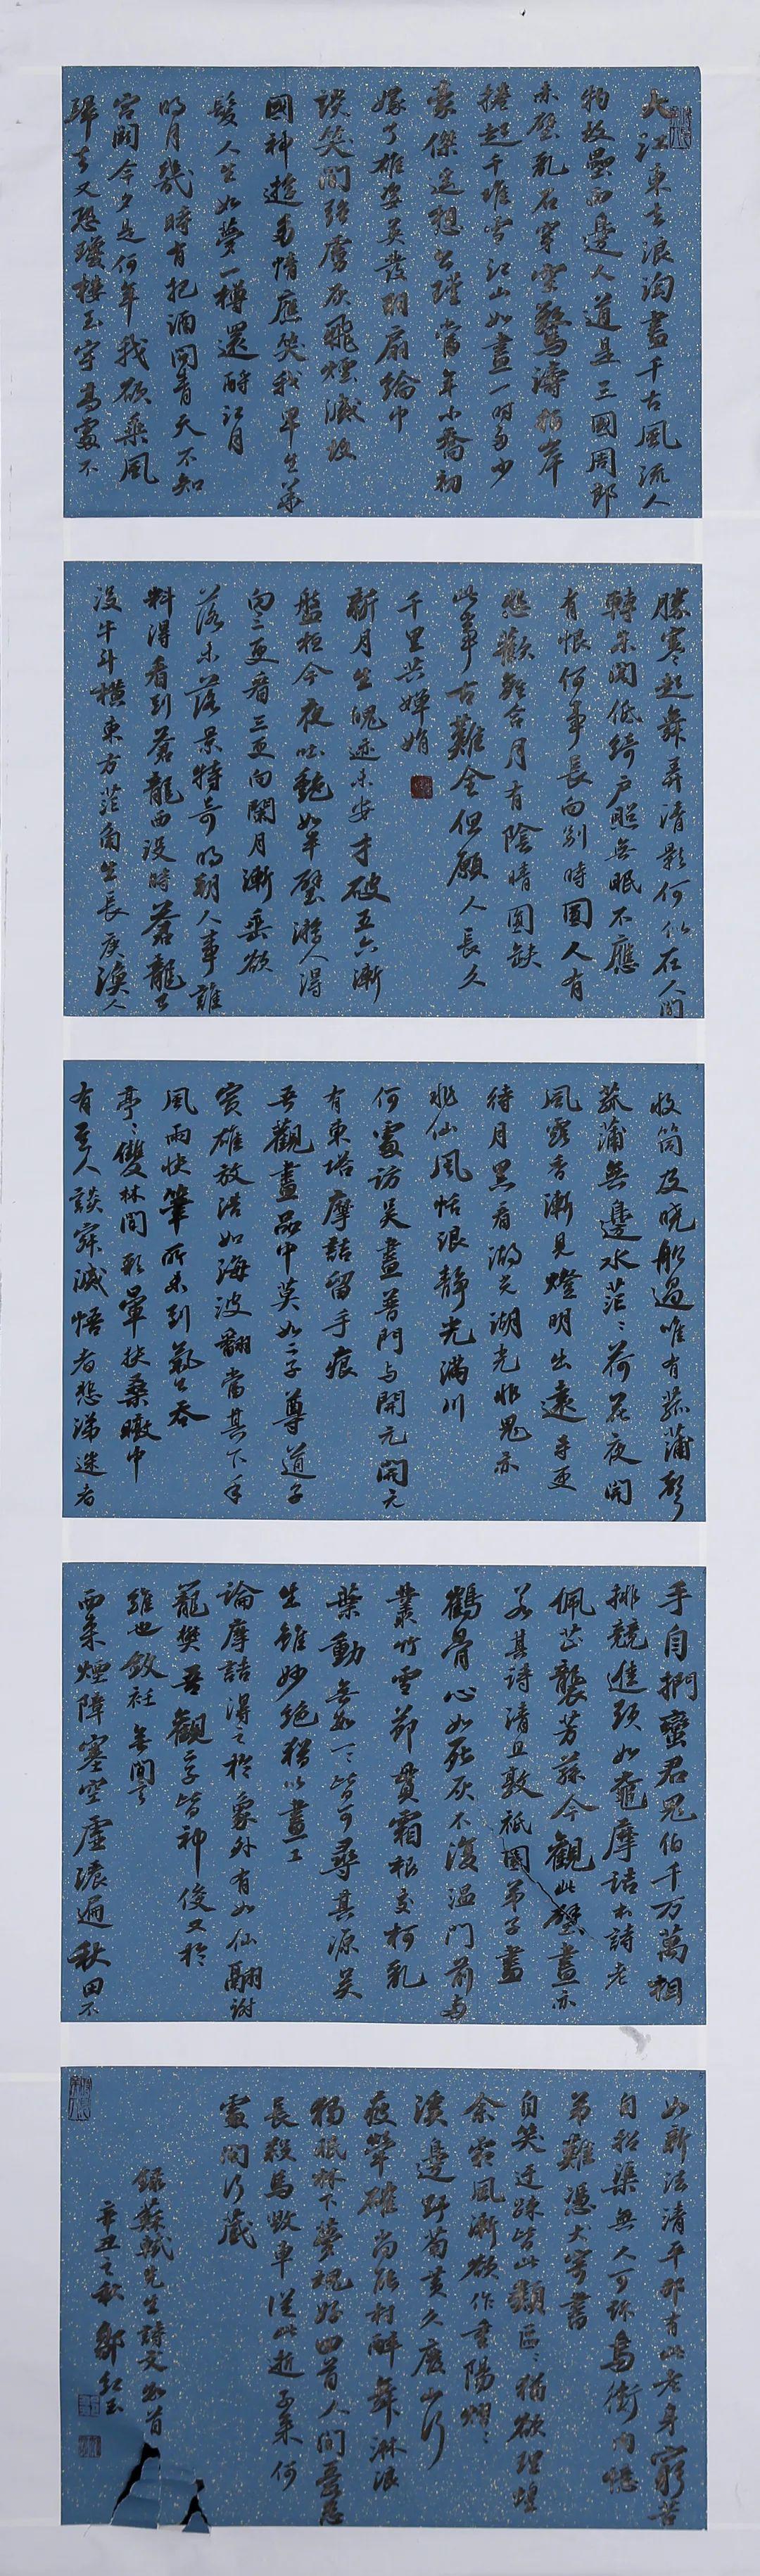 大江东去浪淘尽千古風流人
物故壘西邊人道是三國周郎
赤壁乱石穿空驚濤拍岸
捲起千堆雪江山如畫一时多少
豪傑遥想公瑾當年小喬初
嫁了雄姿英發羽扇綸巾
談笑間强虜灰飛煙滅故
國神遊多情應笑我早生華
髮人生如夢一樽還酹江月
明月幾時有把酒問青天不知
宫闕今夕是何年我欲乘風
歸去又恐瓊樓玉宇高處不
勝寒起舞弄清影何似在人間
轉朱閣低绮户照無眠不應
有恨何事長向别時圆人有
悲歡離合月有陰晴圆缺
此事古難全但願人長久
千里共嬋娟
新月生魄迹未安才破五六漸
盤桓今夜吐艷如半璧游人得
向三更看三更向闌月漸垂欲
落未落景特奇明朝人事誰
料得看到蒼龍西没時蒼龍已
没牛斗横東方芒角生長庚漁人
收筒及曉船過唯有菰蒲聲
菰蒲無邊水茫〻荷花夜開
風露香漸見燈明出遠寺更
待月黑看湖光湖光非鬼亦
非仙風恬浪静光满川
何處訪吴畫普門与開元開元
有東塔摩詰留手痕
吾觀畫品中莫如二子尊道子
實雄放浩如海波翻當其下手
風雨快筆所未到氣已吞
亭〻雙林間彩暈扶桑暾中
有至人談寂滅悟者悲涕迷者
手自捫蠻君鬼伯千万萬相
排競進頭如黿摩詰本詩老
佩芷襲芳蓀今觀此壁畫亦
若其詩清且敦祇園弟子盡
鶴骨心如死灰不復温門前兩
叢竹雪節貫霜根交柯乱
葉動無數一一皆可尋其源吴
生雖妙绝猶以畫工
論摩詰得之於象外有如仙翮謝
籠樊吾觀二子皆神俊又於
維也斂衽無間言
西來煙障塞空虚灑遍秋田雨不
如新法清平那有此老身窮苦
自招渠無人可訴烏銜肉憶
弟難憑犬寄書
自笑迂疎皆此類區〻猶欲理蝗
余霜風漸欲作重陽熠〻
溪邊野菊黄久廢山行
疲犖確尚能村醉舞淋浪
獨眠林下夢魂好回首人間憂患
長殺馬毀車從此逝子來何
處問行藏
録蘇軾先生詩文數首
辛丑之秋鄒紅玉